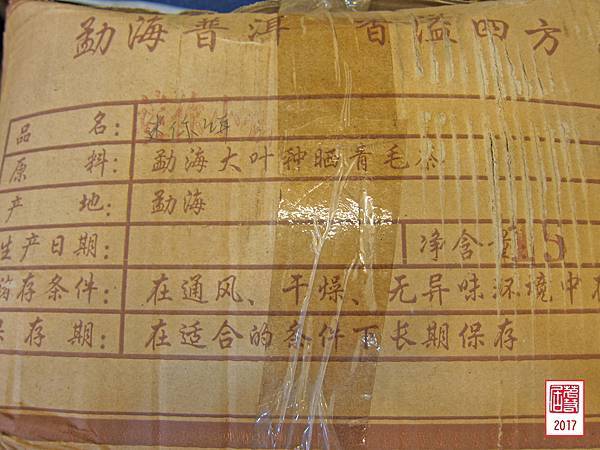 勐海普洱 香溢四方
品 名: 迷你沱
原 料: 勐海大叶种晒青毛茶
产 地: 勐海
生产日期: 净含量 15
储存条件: 在通风、干燥、无异味环境中存
保存期: 在适合的条件下长期保存
2017